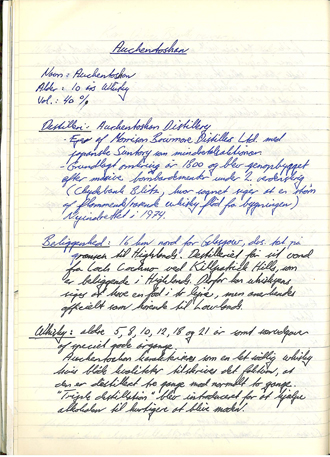 Auchentoshan
Navn: Auchentoshan
Alder: 10 års Whisky
Vol.: 40 %
Destilleri: Auchentoshan Distillery
- Ejes af Morrison Bowmore Distilles Ltd med
japanske Suntory som
- Grundlagt omkring år 1800 og blev genopbygget
efter massive bombardementer under 2 verdenskrig
(Clydebank Blitz, hvor sagnet siger at en strøm
af whisky flød fra bygningen)
i 1974.
Beliggenhed: 16 km nord for Glasgow, dvs. tæt på
grænsen til Highlands. Destilleriet får sit vand
fra Loch Cochno ved Kilpatrick Hills, som
er beliggende i Highlands. Derfor kan whiskyen
siges at have en fod i to lejre, men anerkendes
officielt som hørende til Lowlands.
Whisky: aldre 5, 8, 10, 12, 18 og 21 år samt
af speciel gode årgange.
Auchentoshan karakteriseres som en let whisky
hvis bløde kvaliteter tilskrives det faktum, at
den er destilleret tre gange mod normalt to gange.
"Triple destillation" blev introduceret for at hjælpe
alkoholen til hurtigere at blive moden.